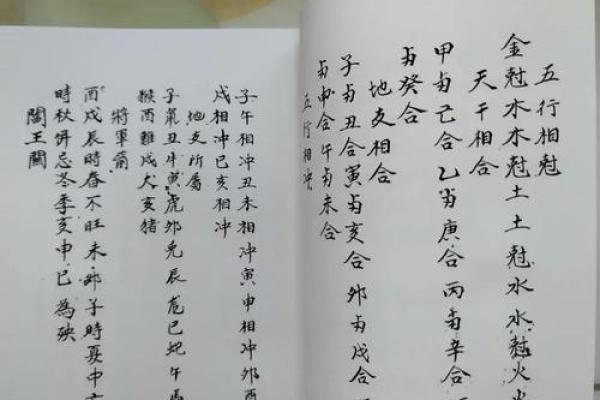 五行相尅
金尅木木尅土土尅水水尅火火
天干相合
甲与己合乙与庚合丙与辛合
与癸合
地支相合
子与丑合寅与亥合卯与戌合
与申合午与未合
五行相冲
子午相冲丑未相冲寅申相冲卯酉
戌相冲巳亥相冲
地支所屬
子鼠丑牛寅虎卯兔辰龙巳蛇午馬
猴酉雞戌犬亥猪
將軍箭
酉戌辰時春不旺未卯子時夏中
時秋併忌冬季亥申巳為殃
閻王關